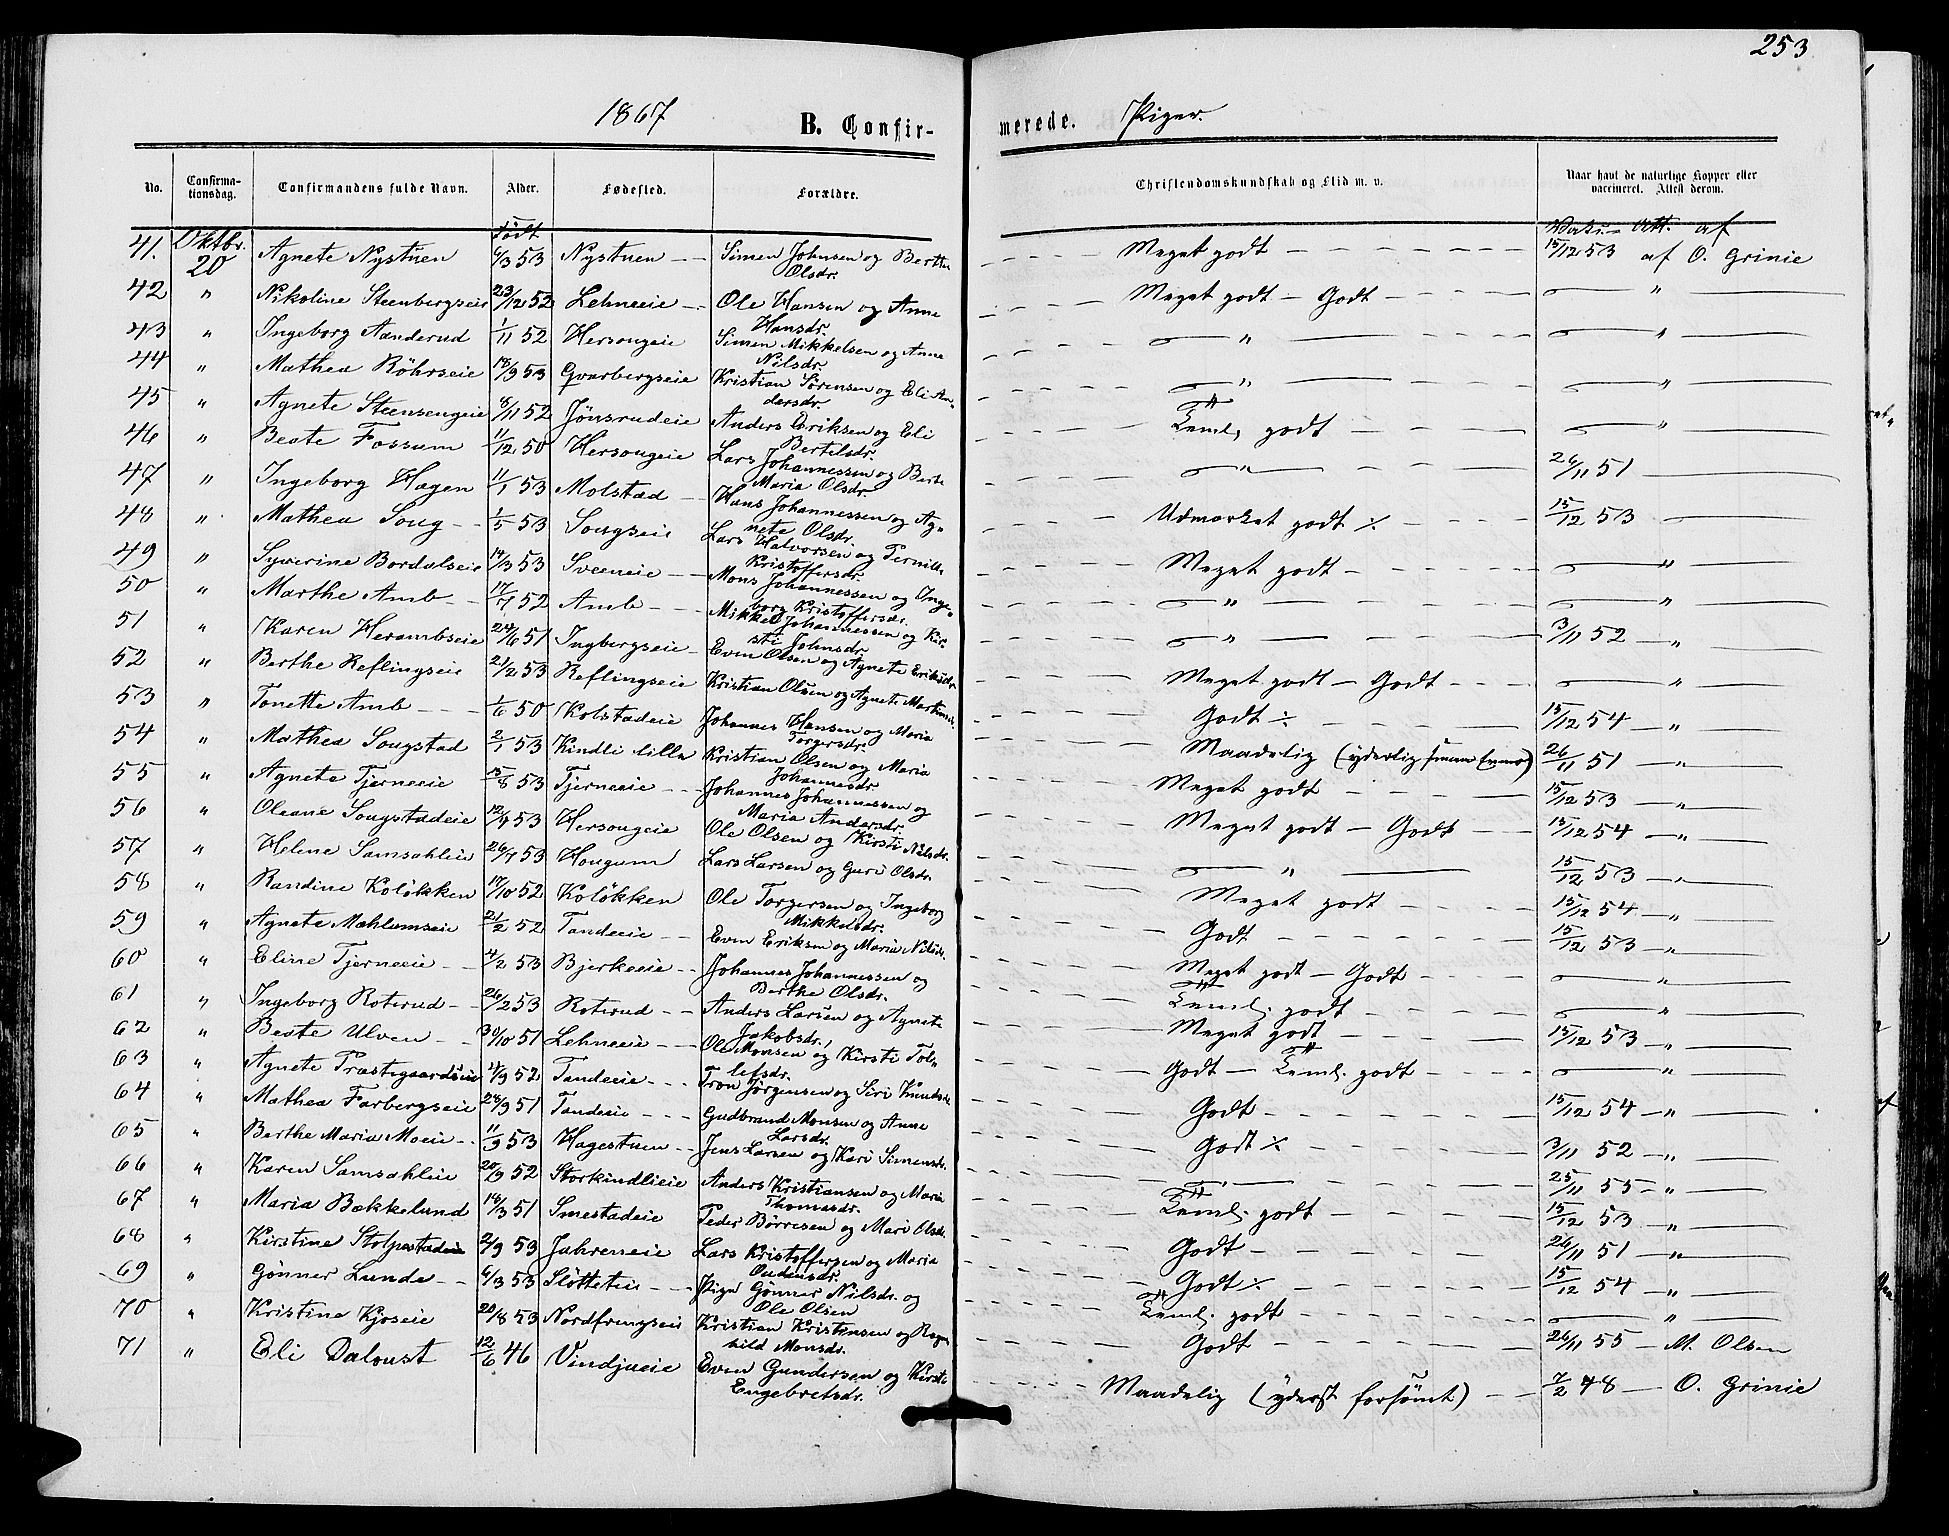 253
1867 B. Confir- merede. Piger.
No. Confirma-tionsdag. Confirmandens fulde Navn. Alder. Fødested. Forældre. Christendomskundskab og Flid m. v. Naar havt de naturlige Kopper eller vaccineret. Attest derom.
Født Att. af
41. Oktbr. 20 Agnete Nystuen 6/3 53 Nystuen Simen Johnsen og Berthe Olsdr. Meget godt 15/12 53 af O. Grinie
42 " Nikoline Steenbergseie 23/12 52 Lehneeie Ole Hansen og Anne Hansdr. Meget godt - Godt "
43 " Ingeborg Aanderud 1/11 52 Hersougeie Simen Mikkelsen og Anne Nilsdr. " "
44 " Mathea Röhrseie 18/9 53 Gvarbergseie Kristian Sørensen og Eli Andersdr. " "
45 " Agnete Steensengeie 8/11 52 Jönsrudeie Anders Eriksen og Eli Bertelsdr. Teml. godt "
46 " Beate Fossum 11/12 50 Hersougeie Lars Johannessen og Berte Maria Olsdr. " 26/11 51
47 " Ingeborg Hagen 11/1 53 Molstad Hans Johannessen og Agnete Olsdr. Udmærket godt ÷ 15/12 53
48 " Mathea Soug 1/5 53 Sougseie Lars Halvorsen og Pernille Kristoffersdr. Meget godt "
49 " Syverine Bordalseie 14/3 53 Sveeneie Mons Johannessen og Ingeborg Kristoffersdr. " "
50 " Marthe Amb 17/7 52 Amb Mikkel Johannessen og Kirsti Johnsdr. " 3/11 52 "
51 " Karen Herambseie 24/6 51 Ingbergseie Even Olsen og Agnete Eriksdr. Meget godt - Godt "
52 " Berthe Reflingseie 21/2 53 Reflingseie Kristian Olsen og Agnete Martinsdr. Godt ÷ 15/12 54 "
53 " Tonette Amb 1/6 50 Kolstadeie Johannes Hansen og Maria Torgersdr. Maadelig 26/11 51 "
54 " Mathea Sougstad 2/1 53 Kindli lille Kristian Olsen og Maria Johannesdr. Meget godt 15/12 53 "
55 " Agnete Tjerneeie 15/8 53 Tjerneeie Johannes Johannessen og Maria Andersdr. Meget godt - Godt 15/12 54 "
56 " Oleane Sougstadeie 12/9 53 Hersougeie Ole Olsen og Kirsti Nilsdr. " 15/12 53 "
57 " Helene Samsahleie 26/7 53 Hougum Lars Larsen og Guri Olsdr. Meget godt 15/12 54 "
58 " Randine Kolökken 17/10 52 Kolökken Ole Torgersen og Ingeborg Mikkelsdr. Godt 15/12 53 "
59 " Agnete Mæhlumseie 21/2 52 Tandeeie Even Eriksen og Maria Nilsdr. Meget godt - Godt "
60 " Eline Tjerneeie 4/2 53 Bjerkeeie Johannes Johannessen og Berthe Olsdr. Teml. godt "
61 " Ingeborg Roterud 26/2 53 Roterud Anders Larsen og Agnete Jakobsdr. Meget godt 15/12 53 "
62 " Beate Ulven 30/10 51 Lehneeie Ole Monsen og Kirsti Tollefsdr. Godt - Teml. godt "
63 " Agnete Præstegaardseie 14/9 52 Tandeeie Tron Jörgensen og Siri Knudsdr. Godt 15/12 54 "
64 " Mathea Farbergseie 28/9 51 Tandeeie Gudbrand Monsen og Anne Larsdr. Godt ÷ 3/11 52 "
65 " Berthe Maria Moeie 11/9 53 Hagestuen Jens Larsen og Kari Simensdr. " 25/11 55 "
66 " Karen Samsahleie 20/9 52 Storkindlieie Anders Kristiansen og Maria Thomasdr. Teml. godt 15/12 53 "
67 " Maria Bækkelund 18/3 51 Smestadeie Peder Börresen og Mari Olsdr. Godt 26/11 51 "
68 " Kirstine Stolpestadeie 2/9 53 Jahreneie Lars Kristoffersen og Maria Oudensdr. Godt ÷ 15/12 54 "
69 " Gönner Lunde 6/3 53 Slötteteie Pige Gönner Nilsdr. og Ole Olsen Teml. godt "
70 " Kristine Kjoseie 20/8 53 Nordfrengseie Kristian Kristensen og Ragnhild Monsdr. Godt 26/11 55 M. Olsen
71 " Eli Daloust 12/6 46 Vindjueie Even Gundersen og Kirsti Engebretsdr. Maadelig (yderst forsömt) 7/2 48 O. Grinie